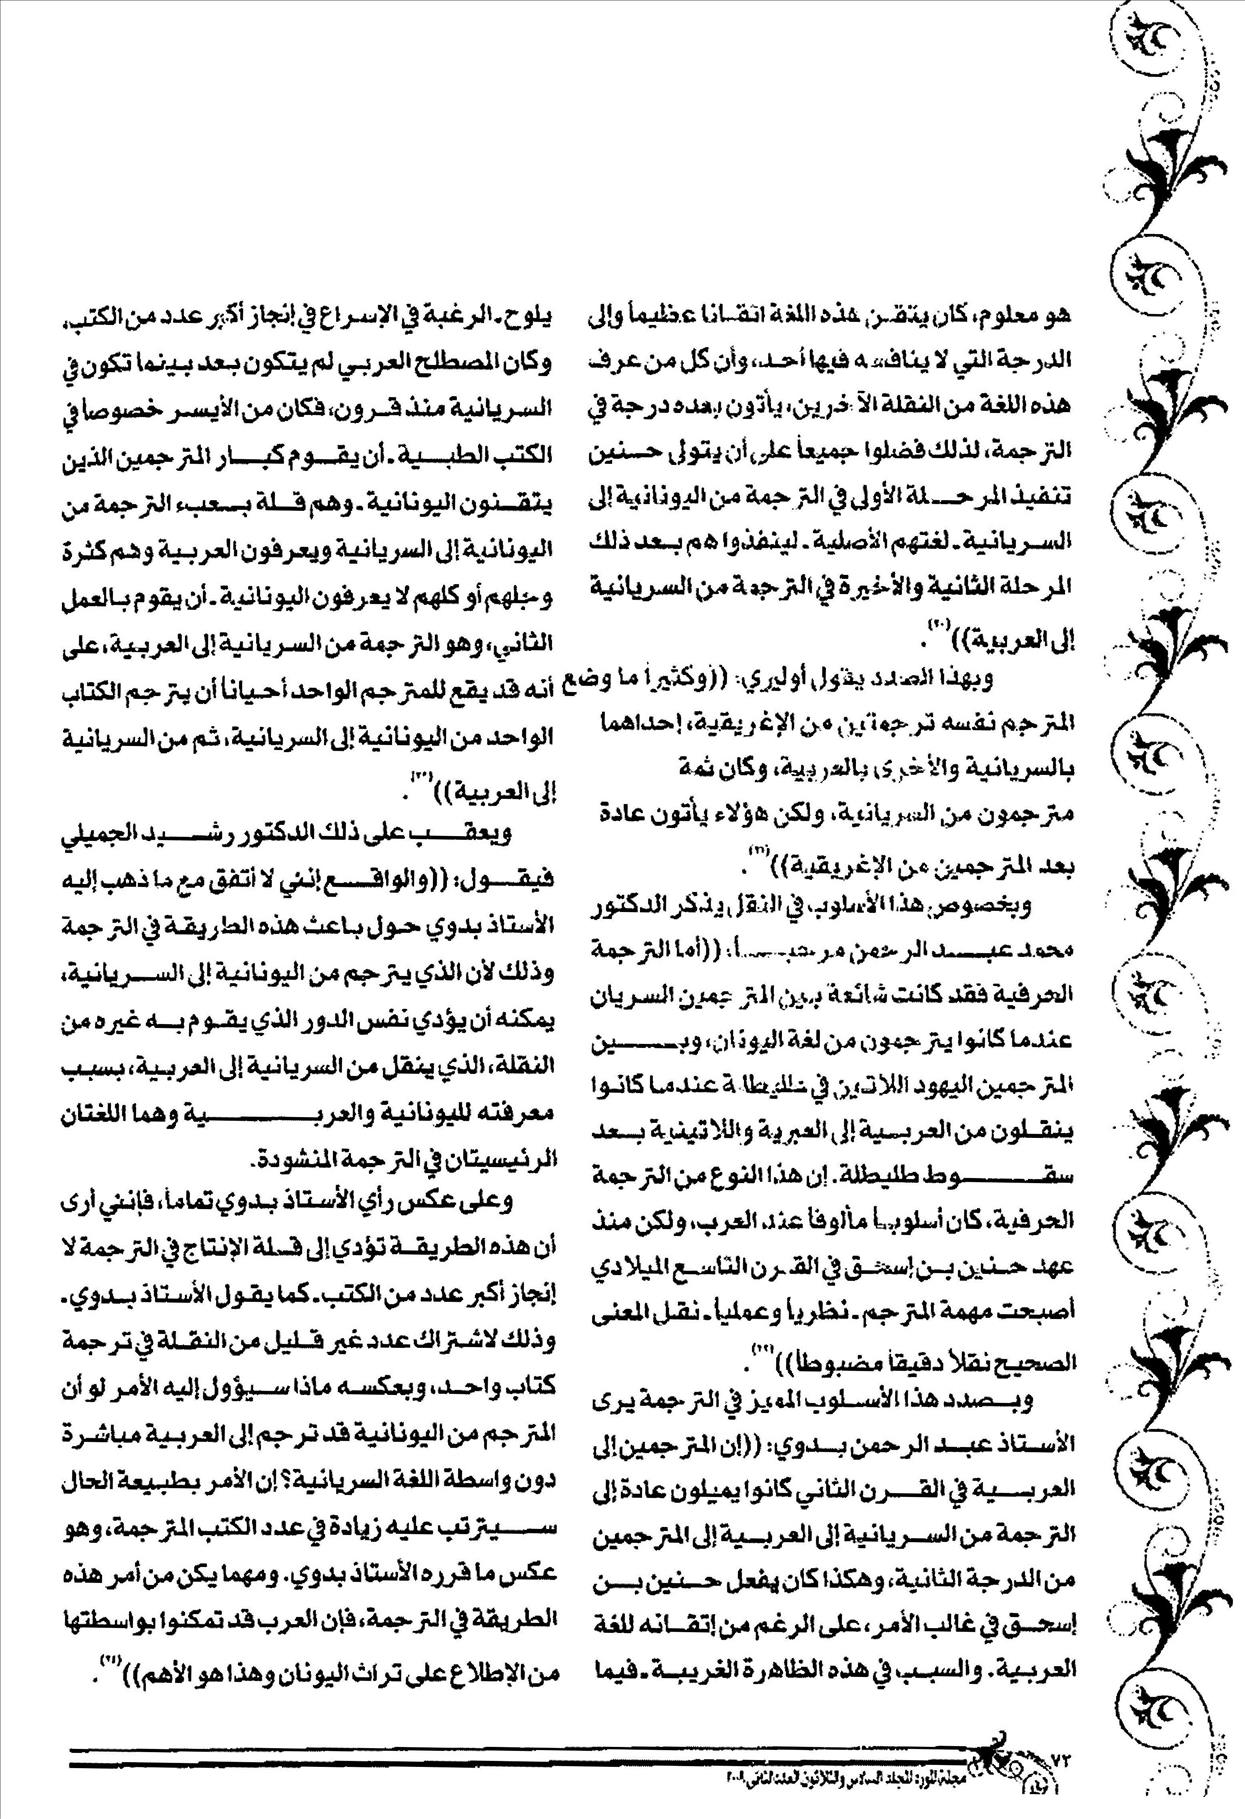 هو معلوم، كان يتقن هذه اللغة اتقانا عظيماً وإلى
الدرجة التي لا ينافسه فيها أحد، وأن كل من عرف
هذه اللغة من النقلة الآخرين، يأتون بعده درجة في
الترجمة، لذلك فضلوا جميعاً على أن يتولى حنين
تنفيذ المرحلة الأولى في الترجمة من اليونانية إلى
السريانية ـ لغتهم الأصلية ـ لينفذوا هم بعد ذلك
المرحلة الثانية والأخيرة في الترجمة من السريانية
إلى العربية))(٢٠).
وبهذا الصدد يقول أوليري: ((وكثيراً ما وضع
المترجم نفسه ترجمتين من الإغريقية، إحداهما
بالسريانية والأخرى بالعربية، وكان ثمة
مترجمون من السريانية، ولكن هؤلاء يأتون عادة
بعد المترجمين من الإغريقية))(٢١).
وبخصوص هذا الأسلوب في النقل يذكر الدكتور
محمد عبد الرحمن مرحبا: ((أما الترجمة
الحرفية فقد كانت شائعة بين المترجمين السريان
عندما كانوا يترجمون من لغة اليونان، وبين
المترجمين اليهود اللاتين في طليطلة عندما كانوا
ينقلون من العربية إلى العبرية واللاتينية بعد
سقوط طليطلة. إن هذا النوع من الترجمة
الحرفية، كان أسلوبا مألوفاً عند العرب، ولكن منذ
عهد حنين بن إسحق في القرن التاسع الميلادي
أصبحت مهمة المترجم ـ نظرياً وعملياً ـ نقل المعنى
الصحيح نقلاً دقيقاً مضبوطاً))(٢٢).
وبصدد هذا الأسلوب المميز في الترجمة يرى
الأستاذ عبد الرحمن بدوي: ((إن المترجمين إلى
العربية في القرن الثاني كانوا يميلون عادة إلى
الترجمة من السريانية إلى العربية إلى المترجمين
من الدرجة الثانية، وهكذا كان يفعل حنين بن
إسحق في غالب الأمر، على الرغم من إتقانه للغة
العربية. والسبب في هذه الظاهرة الغريبة ـ فيما
يلوح ـ الرغبة في الإسراع في إنجاز أكبر عدد من الكتب،
وكان المصطلح العربي لم يتكون بعد بينما تكون في
السريانية منذ قرون، فكان من الأيسر خصوصاً في
الكتب الطبية ـ أن يقوم كبار المترجمين الذين
يتقنون اليونانية ـ وهم قلة بعبء الترجمة من
اليونانية إلى السريانية ويعرفون العربية وهم كثرة
وجلهم أو كلهم لا يعرفون اليونانية ـ أن يقوم بالعمل
الثاني، وهو الترجمة من السريانية إلى العربية، على
أنه قد يقع للمترجم الواحد أحياناً أن يترجم الكتاب
الواحد من اليونانية إلى السريانية، ثم من السريانية
إلى العربية)).
ويعقب على ذلك الدكتور رشيد الجميلي
فيقول: ((والواقع إنني لا أتفق مع ما ذهب إليه
الأستاذ بدوي حول باعث هذه الطريقة في الترجمة
وذلك لأن الذي يترجم من اليونانية إلى السريانية،
يمكنه أن يؤدي نفس الدور الذي يقوم به غيره من
النقلة، الذي ينقل من السريانية إلى العربية، بسبب
معرفته لليونانية والعربية وهما اللغتان
الرئيسيتان في الترجمة المنشودة.
وعلى عكس رأي الأستاذ بدوي تماماً، فإنني أرى
أن هذه الطريقة تؤدي إلى قلة الإنتاج في الترجمة لا
إنجاز أكبر عدد من الكتب ـ كما يقول الأستاذ بدوي ـ
وذلك لاشتراك عدد غير قليل من النقلة في ترجمة
كتاب واحد، وبعكسه ماذا سيؤول إليه الأمر لو أن
المترجم من اليونانية قد ترجم إلى العربية مباشرة
دون واسطة اللغة السريانية؟ إن الأمر بطبيعة الحال
سيترتب عليه زيادة في عدد الكتب المترجمة، وهو
عكس ما قرره الأستاذ بدوي. ومهما يكن من أمر هذه
الطريقة في الترجمة، فإن العرب قد تمكنوا بواسطتها
من الإطلاع على تراث اليونان وهذا هو الأهم)).
٧٢
مجلة المورد المجلد السادس والثلاثون العدد الثاني ٢٠٠٨